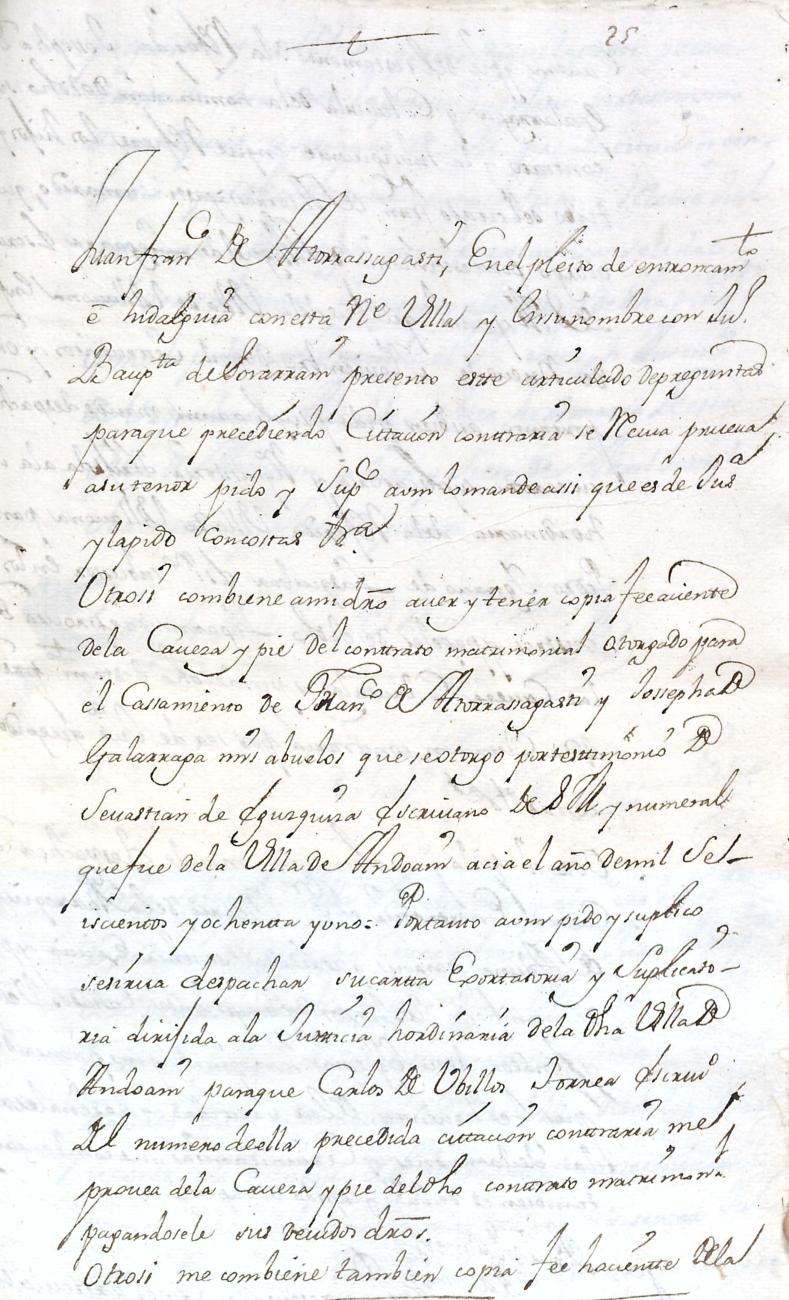 25
Juan fran.co de Atorrassagasti, En el pleito de entroncam.to
e hidalguia con esta N.e Villa y en su nombre con Ju.
Baup.ta de Lorarram presento este articulado de preguntas
paraque precediendo Cittacion conttraria se Reciva prueva
a su tenor pido y Sup.co a vm lo mande assi que es de Jus.a
y la pido con costas &ra
Otrosi combiene a mi dro aver y tener copia fee aciente
de la Caveza y pie del conttrato matrimonial otorgado para
el Cassamiento de Fran.co de Atorrassagasti y Jossepha de
Galarraga mis abuelos que se otorgo por testtimonio de
Sevastian de Egurquiza Escrivano de S M y numeral
que fue de la Villa de Andoain acia el año de mil Se-
iscientos y ochentta y uno: Por tanto a vm pido y suplico
se sirva despachar su cartta Exortatoria y Suplicato-
ria dirijida a la Justticia hordinaria de la dha Villa de
Andoain paraque Carlos de Ubillos Jornea Escriv.o
del numero de ella precedida cittacion conttraria me
provea de la Caveza y pie del dho conttrato matrimon.l
pagandosele sus devidos dros.
Otrosi me combiene tambien copia fee haciente de la